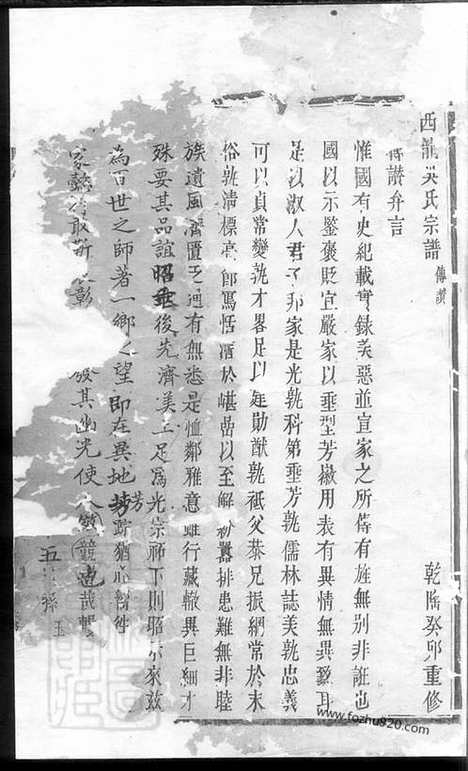 西龍吳氏宗譜 傳讚 乾隆癸卯重修
傳讚弁言
惟國有史紀載實錄美惡並宣家之所傳有旌無別非誑也
國以示鑒褒貶宜嚴家以垂型芳徽用表有異情無異致耳
是以淑人君子邦家是光孰科第垂芳孰儒林誌美孰忠義
可以貞常變孰才畧足以建勛猷孰祗父恭兄振綱常於末
俗孰清標亮節篤恬澹於嵁喦以至解紛排患難無非睦
族遺風濟匱乏週有無悉是恤鄰雅意雖行藏轍異巨細才
殊要其品誼昭垂後先濟美足為光宗祊下則昭示來茲
為百世之師著一鄉之望即在異地芳踪猶
家 敢 彰 發其幽光使人
五 孫 玉
www.fozhu920.com